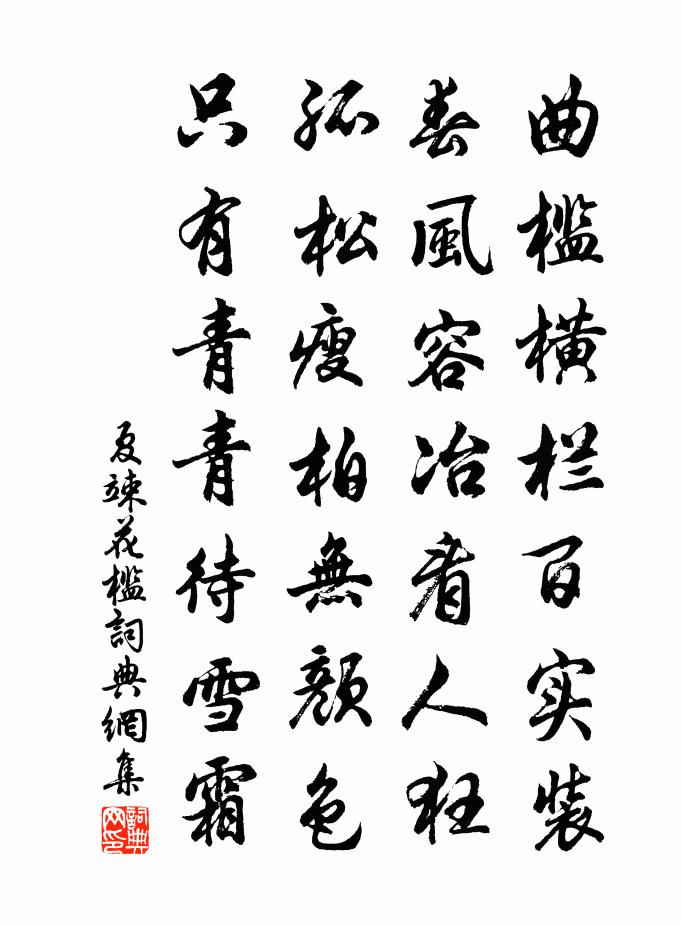 曲槛横栏百实装
春風容冶看人狂
孤松瘦柏無颜色
只有青青待雪霜
夏竦花槛詞典網集
詞典网印